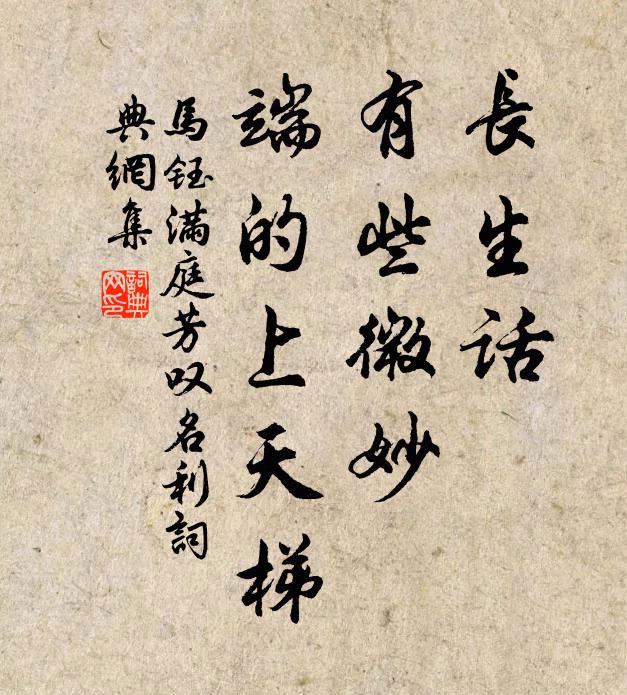 長生話
有些微妙
端的上天梯
馬鈺满庭芳叹名利詞
典網集
詞典
网印